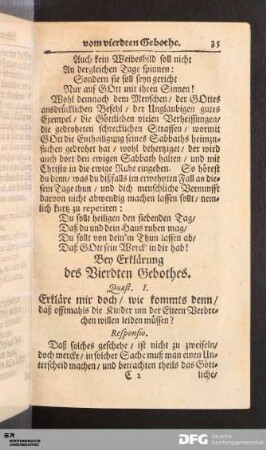 vom vierdten Gebothe. 35
Auch kein Weibesbild soll nicht
An dergleichen Tage spinnen:
Sondern sie soll seyn gericht
Nur auf GOtt mit ihren Sinnen!
Wohl demnach dem Menschen / der GOttes
ausdrücklichen Befehl / der Unglaubigen gutes
Exempel / die Göttlichen vielen Verheissungen /
die gedroheten schrecklichen Straffen / wormit
GOtt die Entheiligung seines Sabbaths heimzu-
suchen gedrohet hat / wohl behertziget / der wird
auch dort den ewigen Sabbath halten / und mit
Christo in die ewige Ruhe eingehen. So hörest
du denn / was du dißfalls im erwehnten Fall an die-
sem Tage thun / und dich menschliche Vernunfft
darvon nicht abwendig machen lassen sollt / nem-
lich kurtz zu repetiren:
Du sollt heiligen den siebenden Tag /
Daß du und dein Hauß ruhen mag /
Du sollt von dein'm Thun lassen ab /
Daß GOtt sein Werck in dir hab!
Bey Erklärung
des Vierdten Gebothes.
Quæst. I.
Erkläre mir doch / wie kommts denn /
daß offtmahls die Kinder um der Eltern Verbre-
chen willen leiden müssen?
Responsio.
Daß solches geschehe / ist nicht zu zweifeln /
doch mercke / in solcher Sache muß man einen Un-
terscheid machen / und betrachten theils das Gött-
C 2 liche /
DFG Deutsche
Forschungsgemeinschaft